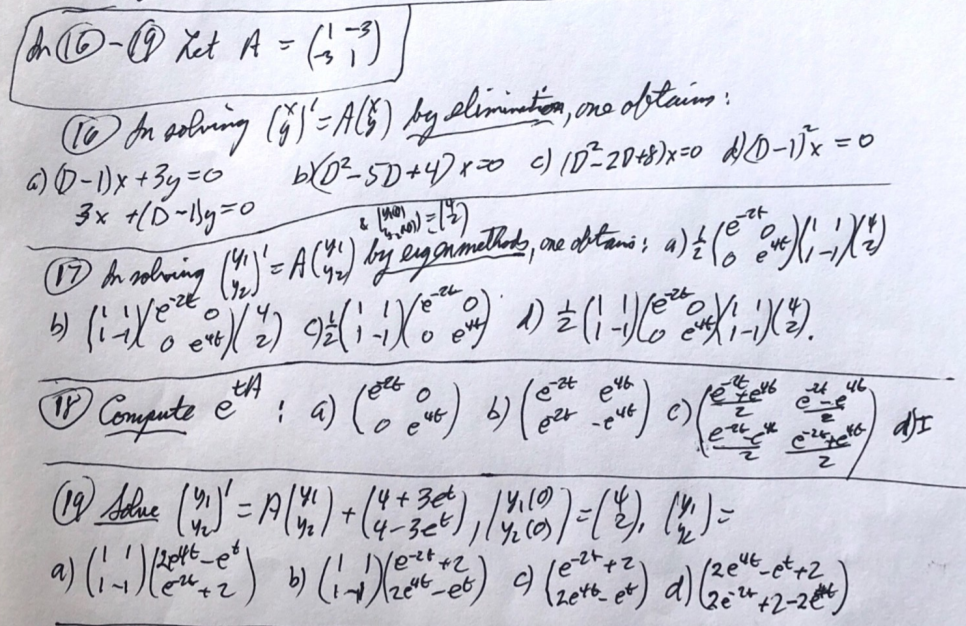 In (16)-(19) Let A = (1 -3 / -3 1)
(16) In solving (x / y)' = A(x / y) by elimination, one obtains:
a) (D-1)x + 3y = 0 b) (D²-5D+4)x=0 c) (D²-2D+8)x=0 d) (D-1)²x = 0
3x + (D-1)y = 0
& (y₁(0) / y₂(0)) = (4 / 2)
(17) In solving (y₁ / y₂)' = A(y₁ / y₂) by eigenmethods, one obtains: a) ½(e^-2t 0 / 0 e^4t)(1 1 / 1 -1)(4 / 2)
b) (1 1 / 1 -1)(e^-2t 0 / 0 e^4t)(4 / 2) c) ½(1 1 / 1 -1)(e^-2t 0 / 0 e^4t) d) ½(1 1 / 1 -1)(e^-2t 0 / 0 e^4t)(1 1 / 1 -1)(4 / 2).
(18) Compute e^tA : a) (e^-2t 0 / 0 e^4t) b) (e^-2t e^4t / e^-2t -e^4t) c) ((e^-2t+e^4t)/2 (e^-2t-e^4t)/2 / (e^-2t-e^4t)/2 (e^-2t+e^4t)/2) d) I
(19) Solve (y₁ / y₂)' = A(y₁ / y₂) + (4+3e^t / 4-3e^t), (y₁(0) / y₂(0)) = (4 / 2), (y₁ / y₂) =
a) (1 1 / 1 -1)(2e^4t-e^t / e^-2t+2) b) (1 1 / 1 -1)(e^-2t+2 / 2e^4t-e^t) c) (e^-2t+2 / 2e^4t-e^t) d) (2e^4t-e^t+2 / 2e^-2t+2-2e^4t)